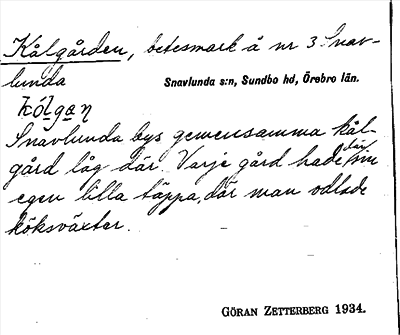 Kålgården, betesmark å nr 3 Snav-
lunda
Snavlunda s:n, Sundbo hd, Örebro län.
kó̱lga̱ŋ
Snavlunda bys gemensamma kål-
gård låg där. Varje gård hade där sin
egen lilla täppa, där man odlade
köksväxter.
GÖRAN ZETTERBERG 1934.